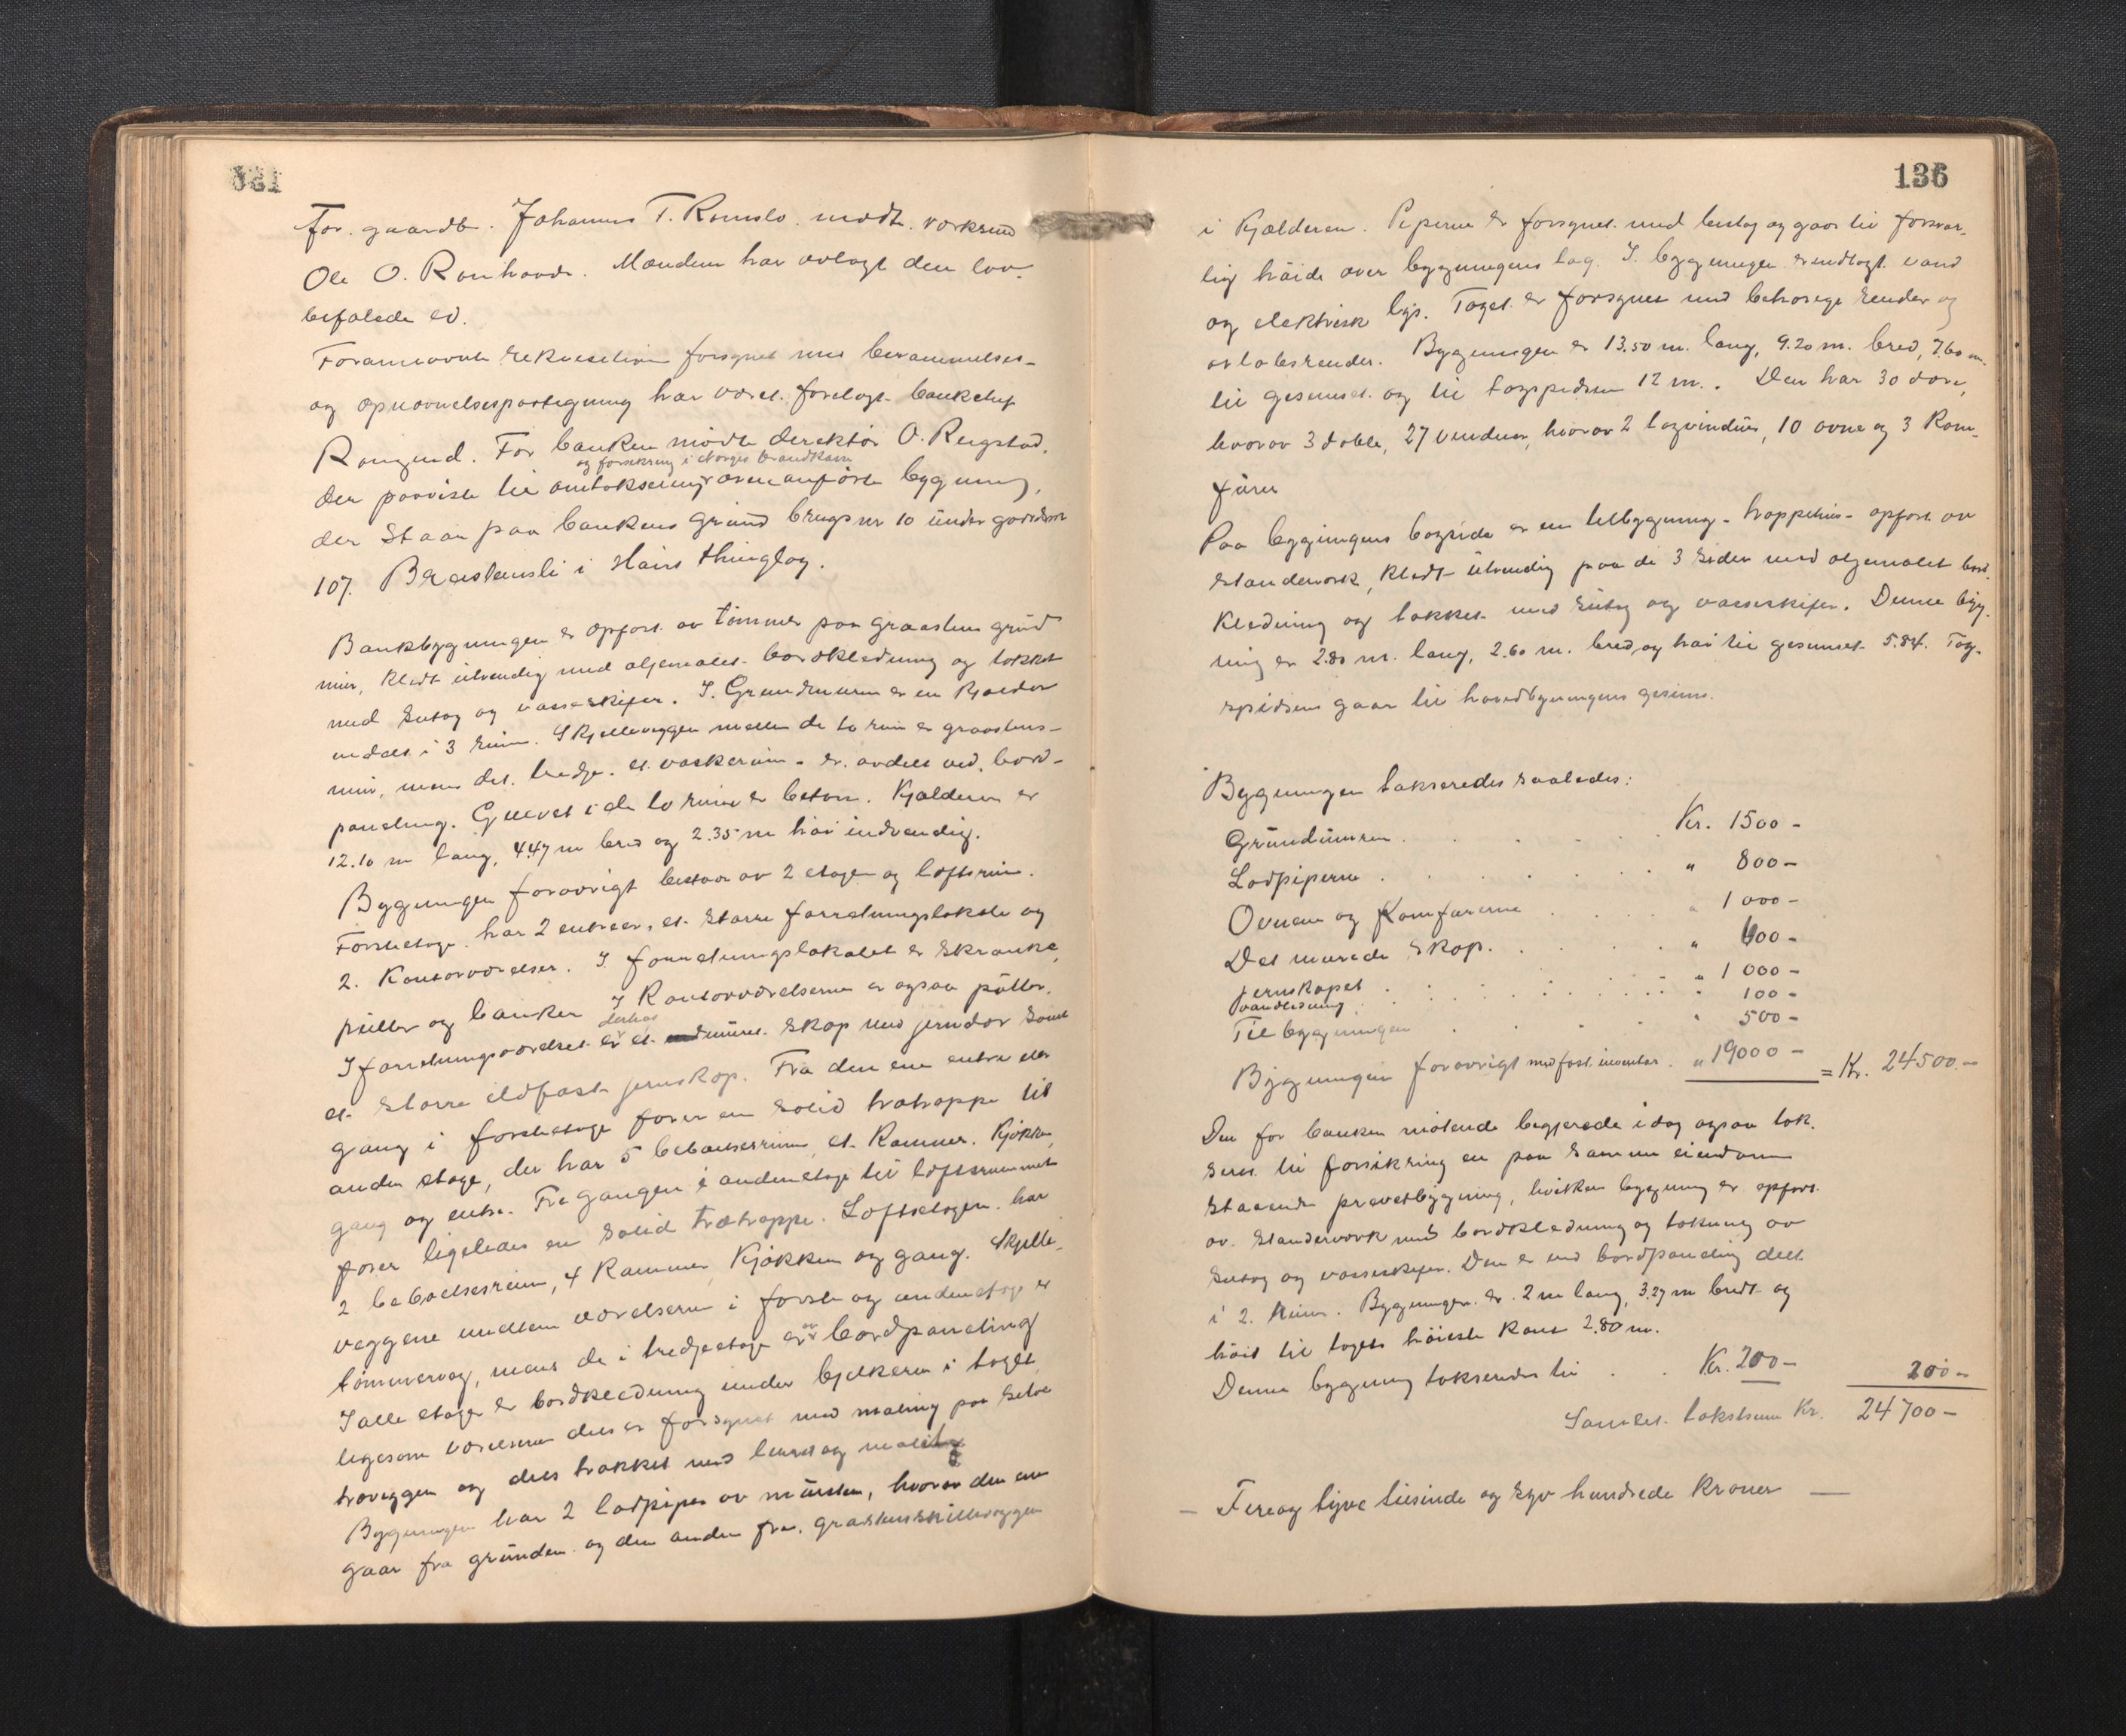 For gaardb. Johannes T. Romslo mødte vorksmd
Ole O. Rønhovde. Mændene har avlagt den lov-
befalede ed.
Forannævnte rekvisition forsynet med berammelses-
og opnævnelsespaategning har været forelagt bankchef
Rongved. For banken mødte direktør O. Reigstad,
og forsikring i Norges Brandkasse
der paaviste til omtaksering ovenanførte bygning,
der staar paa bankens grund brugsnr 10 under gaardsnr
107. Breistensli i Hains thinglag.
Bankbygningen er opført av tømmer paa graastens grund
mur, klædt utvendig med oljemalet bordklædning og tækket
med sutag og vasseskifer. I Grundmuren er en kjælder
inddelt i 3 rum. Skjelleveggen mellem de to rum er graastens-
mur, mens det tredje et vaskerum - er avdelt ved bord-
paneling. Gulvet i de to rum er beton. Kjælderen er
12.10 m lang, 4.47 m bred og 2.35 m høi indvendig.
Bygningen forøvrigt bestaar av 2 etager og loftsrum.
Førsteetage har 2 entreer, et større forretningslokale og
2. Kontorværelser. I forretningslokalet er skranke,
pulter og bænker. I Kontorværelserne er ogsaa pulter.
derhos
I forretningsværelset er et muret skap med jerndør samt
et større ildfast jernskap. Fra den ene entre eller
gang i førsteetage fører en solid trætrappe til
anden etage, der har 5 beboelsesrum, et Kammer, Kjøkken,
gang og entre. Fra gangen i andenetage til loftsrummet
fører ligeledes en solid trætrappe. Loftsetagen har
2 beboelsesrum, 4 Kammer, Kjøkken og gang. Skjelle-
veggene mellem værelserne i første og andenetage er
tømmerveg, mens de i tredjeetage er av bordpaneling
I alle etager er bordklædning under bjelkerne i taget,
ligesom værelserne dels er forsynet med maling paa selve
træveggen og dels trækket med lerret og malet
Bygningen har 2 lodpiper av mursten, hvorav den ene
gaar fra grunden og den anden fra graastensskilleveggen
136
i Kjælderen. Piperne er forsynet med beslag og gaar til forsvar-
lig høide over bygningens tag. I bygningen er indlagt vand
og elektrisk lys. Taget er forsynet med behørige render og
avløbsrender. Bygningen er 13.50 m. lang, 9.20 m. bred, 7.60 m.
til gesimset og til tagspidsen 12 m. Den har 30 døre,
hvorav 3 doble, 27 vinduer, hvorav 2 tagvinduer, 10 ovne og 3 Kom-
fürer
Paa bygningens bagside er en tilbygning - trappehus - opført av
standerverk, klædt utvendig paa de 3 sider med oljemalet bord-
klædning og tækket med sutag og vasseskifer. Denne byg-
ning er 2.80 m. lang, 2.60 m. bred og høi til gesimset 5.84. Tag-
spidsen gaar til hovedbygningens gesims.
Bygningen takseredes saaledes:
Grundmuren . . . . Kr. 1500 -
Lodpiperne . . . . " 800 -
Ovnene og Komfurerne . . . " 1000 -
Det murede skap. . . . " 600 -
Jernskapet . . . . " 1000 -
Vandledning . . . . " 100 -
Tilbygningen . . . . " 500 -
Bygningen forøvrigt med fast inventar. " 19000 - = Kr. 24500.-
Den for banken møtende begjærede idag ogsaa tak-
sert til forsikring en paa samme eiendom
staaende privetbygning, hvilken bygning er opført
av standerverk med bordklædning og tækning av
sutag og vasseskifer. Den er med bordpaneling delt
i 2. Rum. Bygningen er 2 m lang, 3.27 m bredt og
høit til tagets høieste Kant 2.80 m.
Denne bygning takseredes til . . Kr. 200 - 200 -
Samlet takstsum Kr. 24700 -
- Fireog tyve tusinde og syv hundrede Kroner -